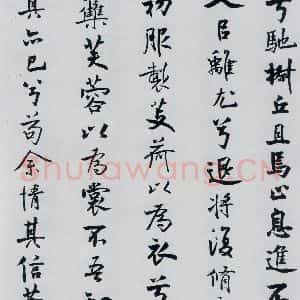 兮馳椒丘且焉止息進不
入以離尤兮退將復脩
初服製芰荷以為衣兮
雧芙蓉以為裳不吾知
其亦已兮苟余情其信芳
Shufawang.CN